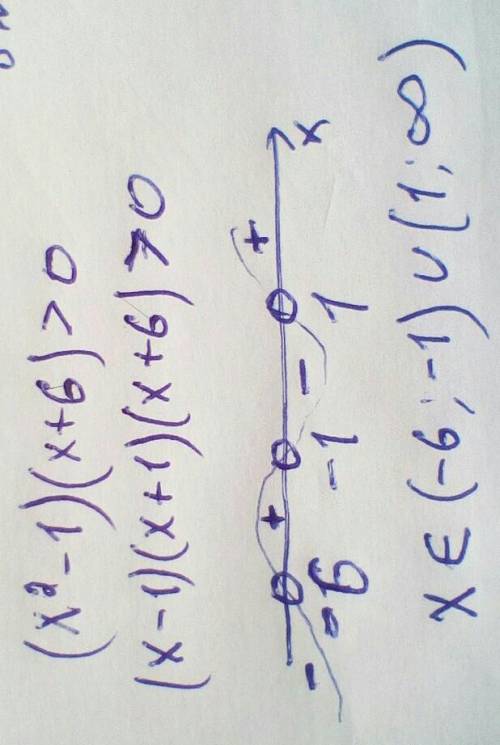 (x²-1)(x+6)>0
(x-1)(x+1)(x+6)>0
- + - +
-6 -1 1 x
x∈(-6;-1)∪(1;∞)